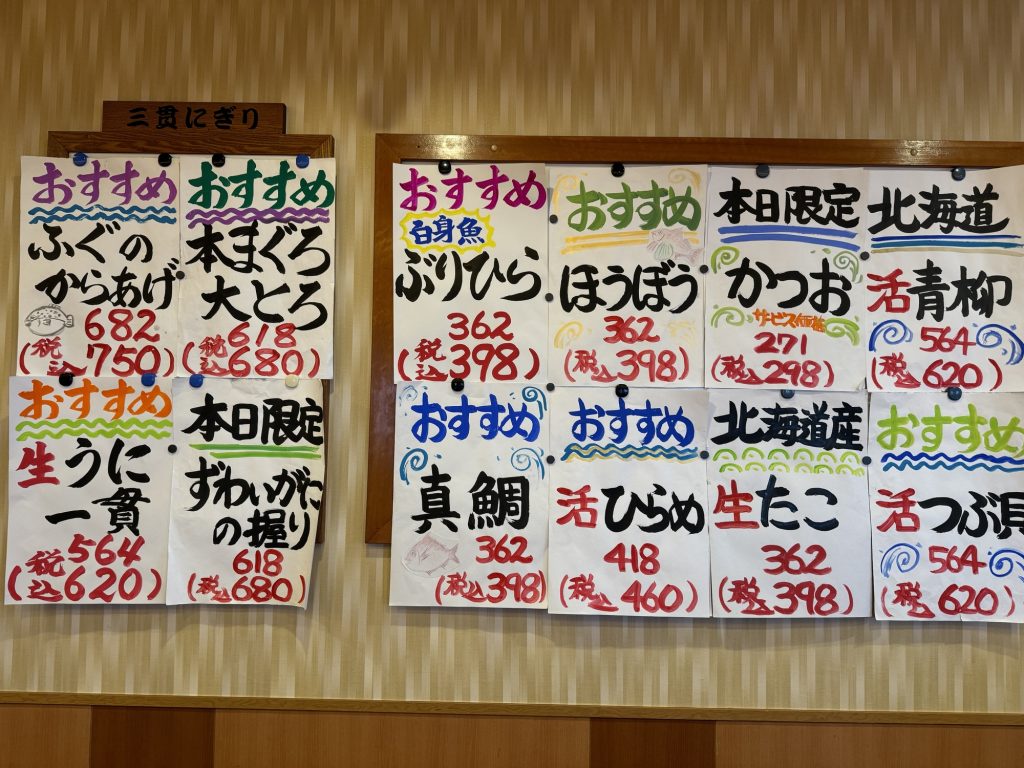 三貫にぎり
おすすめ
ふぐの
からあげ
682
(税込750)
おすすめ
本まぐろ
大とろ
618
(税込680)
おすすめ
生うに
一貫
564
(税込620)
本日限定
ずわいがに
の握り
618
(税込680)
おすすめ
白身魚
ぶりひら
362
(税込398)
おすすめ
ほうぼう
362
(税込398)
本日限定
かつお
サービス価格
271
(税込298)
北海道
活青柳
564
(税込620)
おすすめ
真鯛
362
(税込398)
おすすめ
活ひらめ
418
(税込460)
北海道産
生たこ
362
(税込398)
おすすめ
活つぶ貝
564
(税込620)